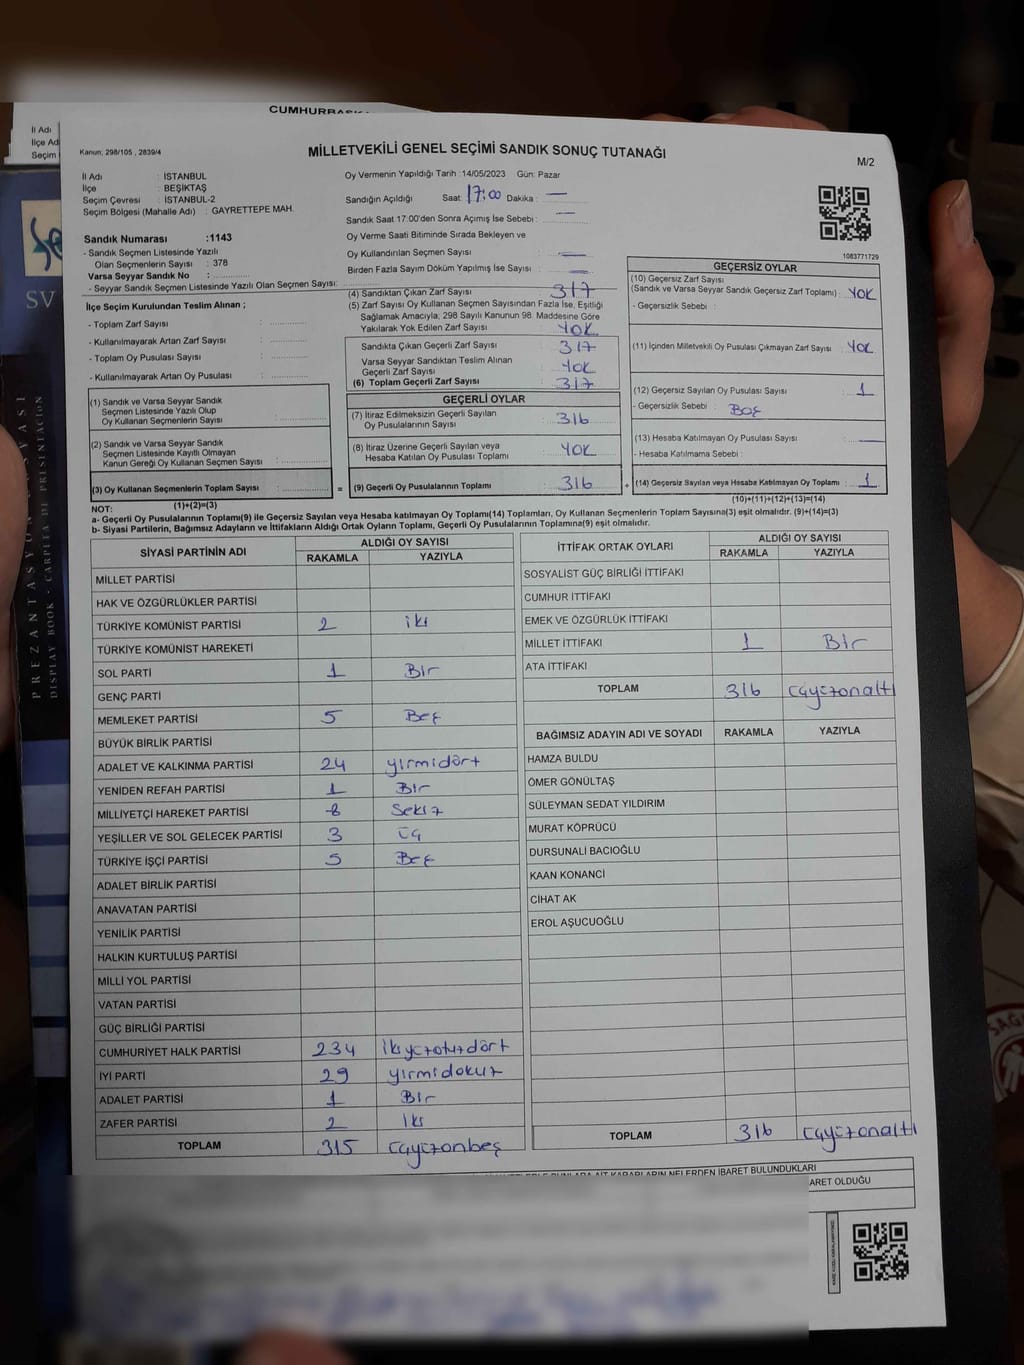 CUMHURBAŞK
İl Adı
İlçe Ad
Seçim
Kanun; 298/105 , 2839/4
MİLLETVEKİLİ GENEL SEÇİMİ SANDIK SONUÇ TUTANAĞI
M/2
İl Adı : İSTANBUL
İlçe : BEŞİKTAŞ
Seçim Çevresi : İSTANBUL-2
Seçim Bölgesi (Mahalle Adı) : GAYRETTEPE MAH.
Oy Vermenin Yapıldığı Tarih :14/05/2023 Gün: Pazar
Sandığın Açıldığı Saat: 17:00 Dakika: —
Sandık Saat 17:00'den Sonra Açımış İse Sebebi : —
Oy Verme Saati Bitiminde Sırada Bekleyen ve
Oy Kullandırılan Seçmen Sayısı : —
Birden Fazla Sayım Döküm Yapılmış İse Sayısı : —
1083771729
Sandık Numarası :1143
- Sandık Seçmen Listesinde Yazılı
Olan Seçmenlerin Sayısı : 378
Varsa Seyyar Sandık No :
- Seyyar Sandık Seçmen Listesinde Yazılı Olan Seçmen Sayısı:
İlçe Seçim Kurulundan Teslim Alınan ;
- Toplam Zarf Sayısı :
- Kullanılmayarak Artan Zarf Sayısı :
- Toplam Oy Pusulası Sayısı :
- Kullanılmayarak Artan Oy Pusulası :
(1) Sandık ve Varsa Seyyar Sandık
Seçmen Listesinde Yazılı Olup
Oy Kullanan Seçmenlerin Sayısı :
(2) Sandık ve Varsa Seyyar Sandık
Seçmen Listesinde Kayıtlı Olmayan
Kanun Gereği Oy Kullanan Seçmen Sayısı :
(3) Oy Kullanan Seçmenlerin Toplam Sayısı :
(1)+(2)=(3)
(4) Sandıktan Çıkan Zarf Sayısı 317
(5) Zarf Sayısı Oy Kullanan Seçmen Sayısından Fazla İse, Eşitliği
Sağlamak Amacıyla; 298 Sayılı Kanunun 98. Maddesine Göre
Yakılarak Yok Edilen Zarf Sayısı : YOK
Sandıkta Çıkan Geçerli Zarf Sayısı : 317
Varsa Seyyar Sandıktan Teslim Alınan
Geçerli Zarf Sayısı : YOK
(6) Toplam Geçerli Zarf Sayısı : 317
GEÇERLİ OYLAR
(7) İtiraz Edilmeksizin Geçerli Sayılan
Oy Pusulalarının Sayısı : 316
(8) İtiraz Üzerine Geçerli Sayılan veya
Hesaba Katılan Oy Pusulası Toplamı : YOK
= (9) Geçerli Oy Pusulalarının Toplamı : 316 +
GEÇERSİZ OYLAR
(10) Geçersiz Zarf Sayısı
(Sandık ve Varsa Seyyar Sandık Geçersiz Zarf Toplamı) : YOK
- Geçersizlik Sebebi :
(11) İçinden Milletvekili Oy Pusulası Çıkmayan Zarf Sayısı : YOK
(12) Geçersiz Sayılan Oy Pusulası Sayısı : 1
- Geçersizlik Sebebi : Boş
(13) Hesaba Katılmayan Oy Pusulası Sayısı : —
- Hesaba Katılmama Sebebi :
(14) Geçersiz Sayılan veya Hesaba Katılmayan Oy Toplamı : 1
(10)+(11)+(12)+(13)=(14)
NOT:
a- Geçerli Oy Pusulalarının Toplamı(9) ile Geçersiz Sayılan veya Hesaba katılmayan Oy Toplamı(14) Toplamları, Oy Kullanan Seçmenlerin Toplam Sayısına(3) eşit olmalıdır. (9)+(14)=(3)
b- Siyasi Partilerin, Bağımsız Adayların ve İttifakların Aldığı Ortak Oyların Toplamı, Geçerli Oy Pusulalarının Toplamına(9) eşit olmalıdır.
SİYASİ PARTİNİN ADI ALDIĞI OY SAYISI
RAKAMLA YAZIYLA
MİLLET PARTİSİ
HAK VE ÖZGÜRLÜKLER PARTİSİ
TÜRKİYE KOMÜNİST PARTİSİ 2 iki
TÜRKİYE KOMÜNİST HAREKETİ
SOL PARTİ 1 Bir
GENÇ PARTİ
MEMLEKET PARTİSİ 5 Beş
BÜYÜK BİRLİK PARTİSİ
ADALET VE KALKINMA PARTİSİ 24 yirmidört
YENİDEN REFAH PARTİSİ 1 Bir
MİLLİYETÇİ HAREKET PARTİSİ 8 Sekiz
YEŞİLLER VE SOL GELECEK PARTİSİ 3 üç
TÜRKİYE İŞÇİ PARTİSİ 5 Beş
ADALET BİRLİK PARTİSİ
ANAVATAN PARTİSİ
YENİLİK PARTİSİ
HALKIN KURTULUŞ PARTİSİ
MİLLİ YOL PARTİSİ
VATAN PARTİSİ
GÜÇ BİRLİĞİ PARTİSİ
CUMHURİYET HALK PARTİSİ 234 ikiyüzotuzdört
İYİ PARTİ 29 yirmidokuz
ADALET PARTİSİ 1 Bir
ZAFER PARTİSİ 2 iki
TOPLAM 315 üçyüzonbeş
İTTİFAK ORTAK OYLARI ALDIĞI OY SAYISI
RAKAMLA YAZIYLA
SOSYALİST GÜÇ BİRLİĞİ İTTİFAKI
CUMHUR İTTİFAKI
EMEK VE ÖZGÜRLÜK İTTİFAKI
MİLLET İTTİFAKI 1 Bir
ATA İTTİFAKI
TOPLAM 316 üçyüzonaltı
BAĞIMSIZ ADAYIN ADI VE SOYADI RAKAMLA YAZIYLA
HAMZA BULDU
ÖMER GÖNÜLTAŞ
SÜLEYMAN SEDAT YILDIRIM
MURAT KÖPRÜCÜ
DURSUNALİ BACIOĞLU
KAAN KONANCİ
CİHAT AK
EROL AŞUCUOĞLU
TOPLAM 316 üçyüzonaltı
BUNLARA AİT KARARLARIN NELERDEN İBARET BULUNDUKLARI
ARET OLDUĞU
SV
PREZANTASYON
DISPLAY BOOK · CARPETA DE PRESENTACION